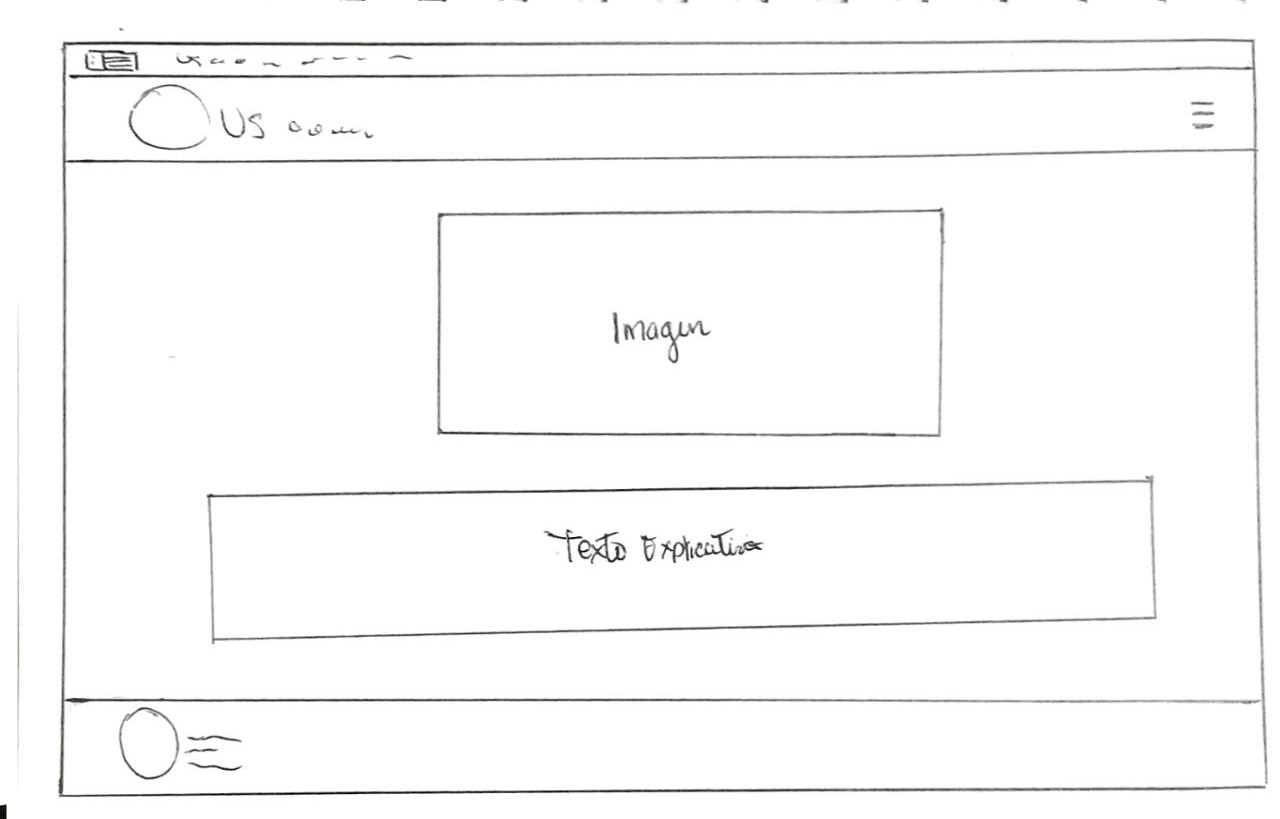 US
Imagen
Texto Explicativo